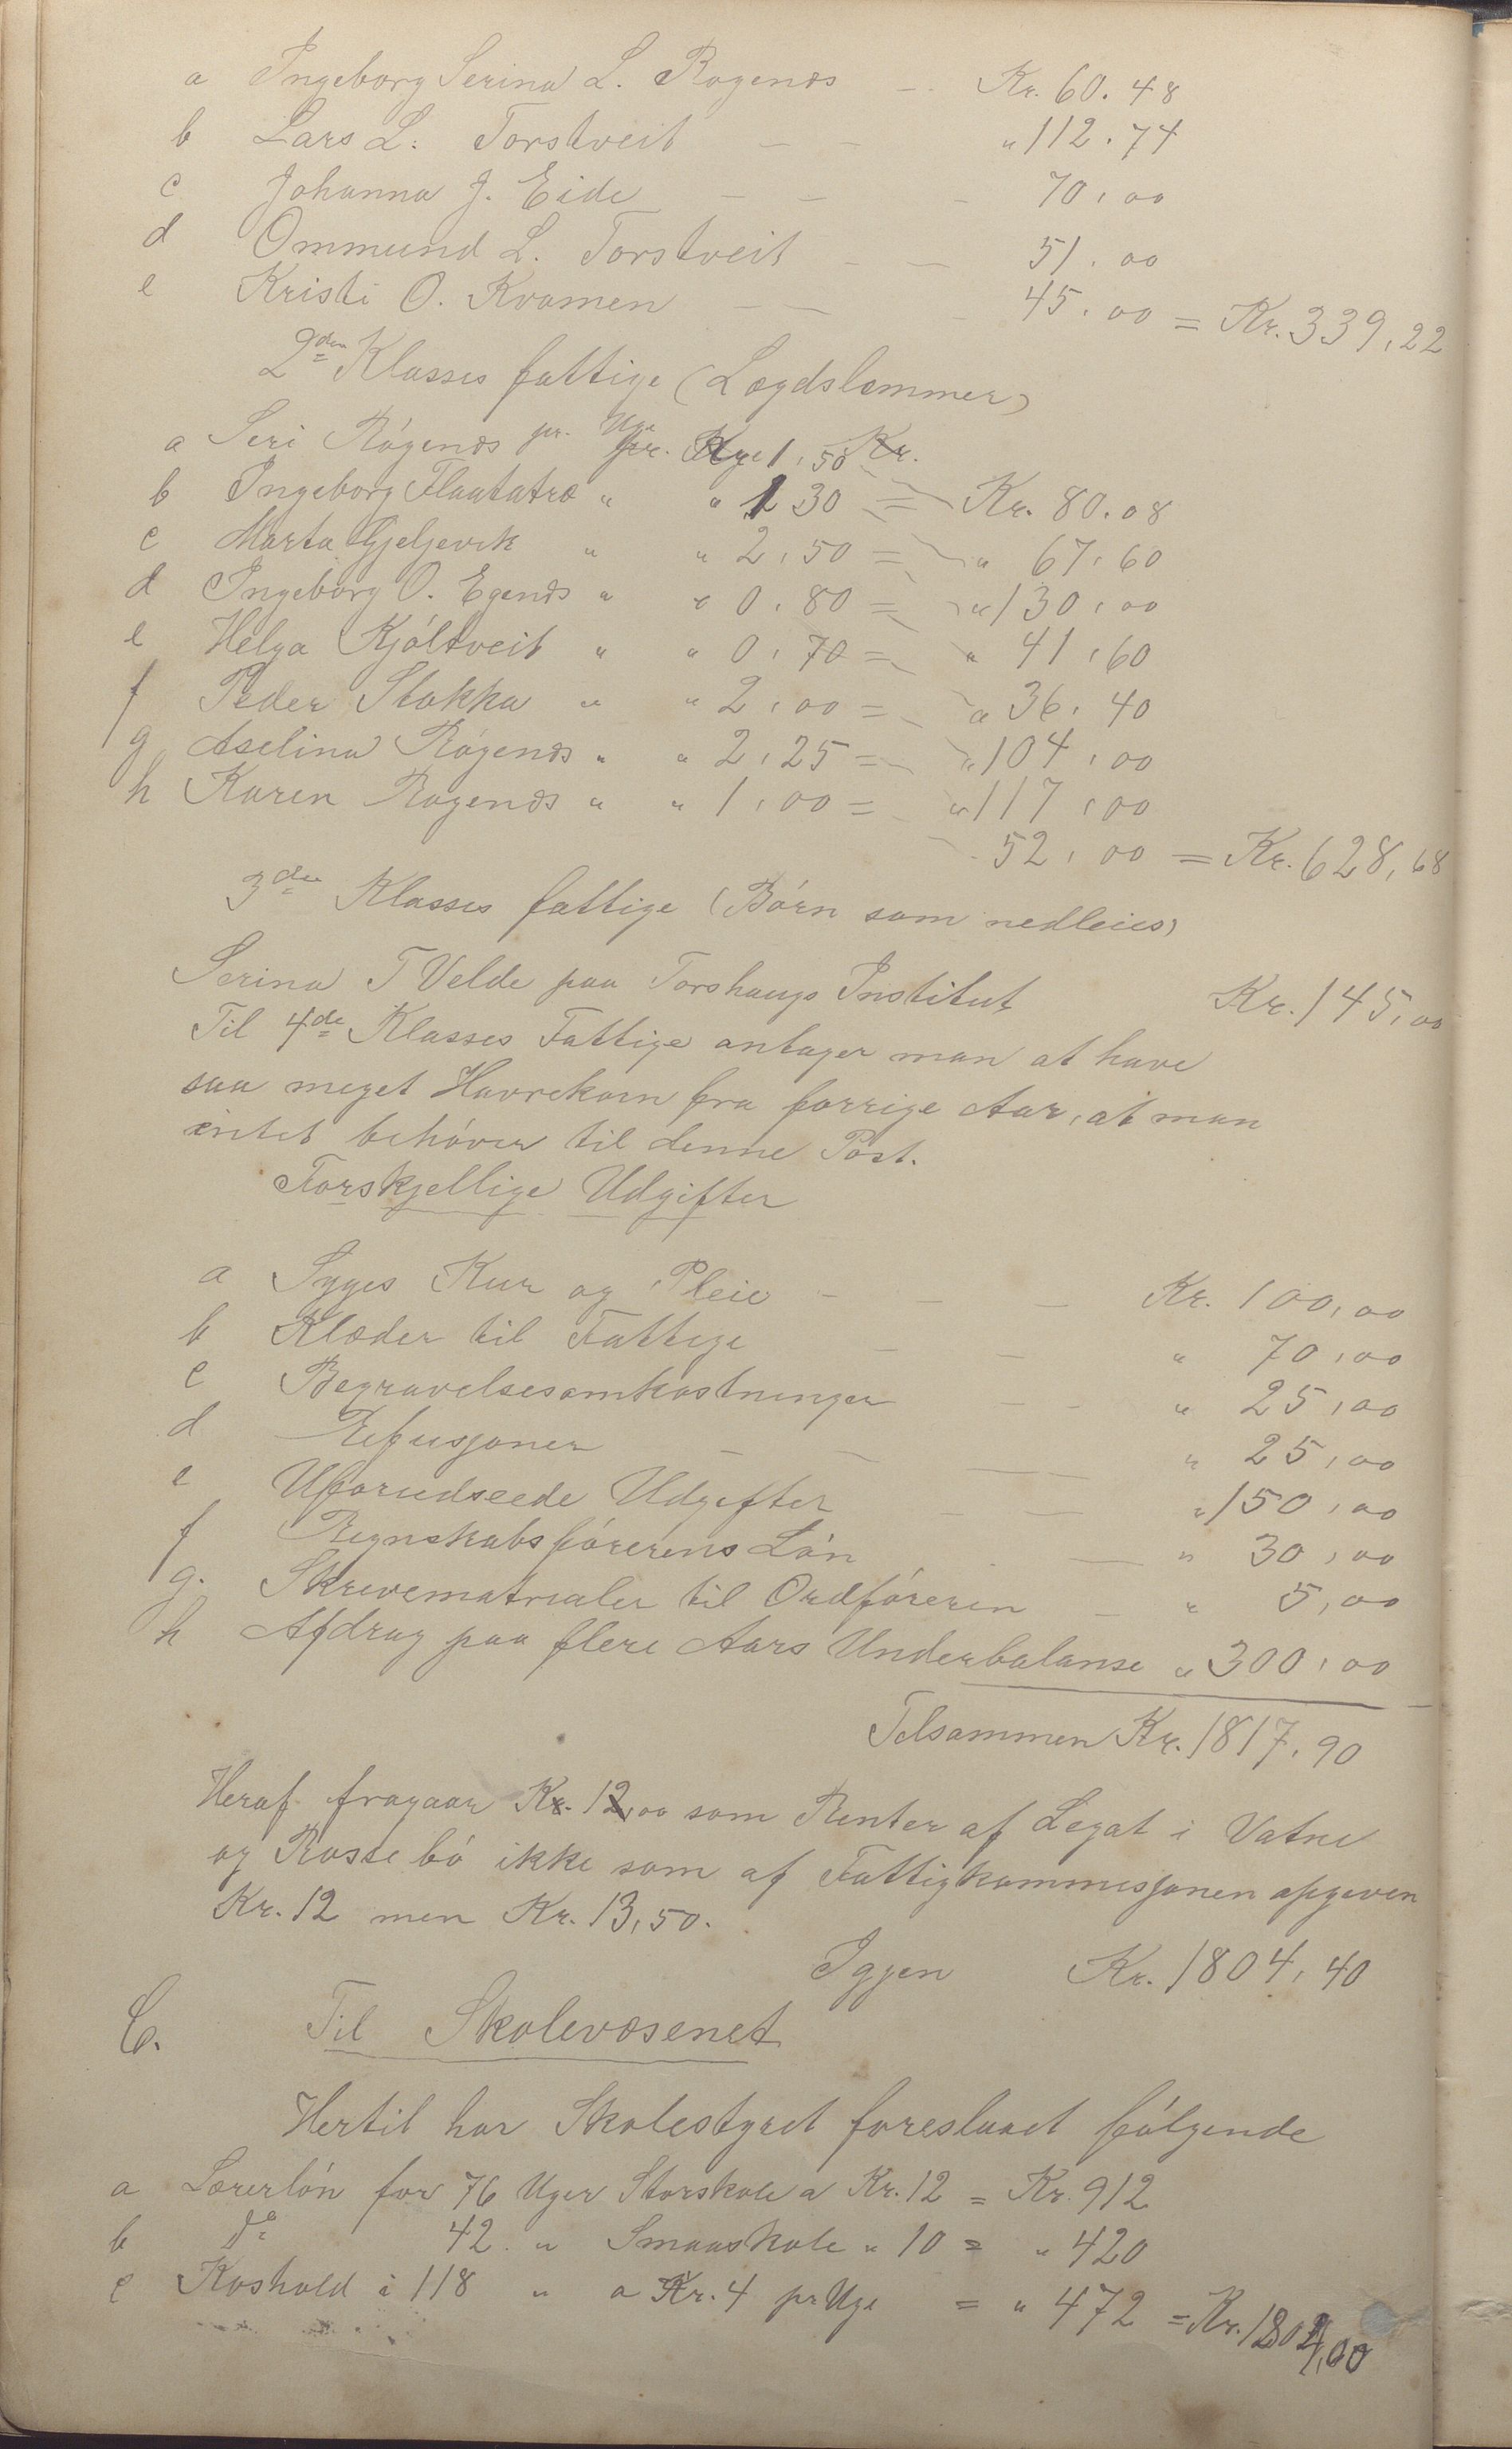 a Ingeborg Serina L. Ragenæs — Kr. 60.48
b Lars L. Torstveit — — " 112.74
c Johanna J. Eide — — — 70,00
d Ommund L. Torstveit — — 51.00
e Kristi O. Kvamen — — — 45.00 = Kr. 339,22
2den Klasses fattige (Lægdslemmer)
a Seri Rógenæs pr. Uge 1,50 Kr.
b Ingeborg Flaatatræ " " 1 30 = Kr. 80.08
c Marta Gjeljevik " " 2,50 = " 67,60
d Ingeborg O. Egenæs " " 0,80 = " 130,00
e Helga Kjóltveit " " 0,70 = " 41,60
f Peder Stakka " " 2,00 = " 36,40
g Aselina Rógenæs " " 2,25 = " 104,00
h Karen Ragenæs " " 1,00 = " 117,00
52,00 = Kr. 628,68
3die Klasses fattige (Bórn som nedleies)
Serina T Velde paa Torshaugs Institut Kr. 145,00
Til 4de Klasses Fattige antager man at have
saa meget Havrekorn fra forrige Aar, at man
intet behóver til denne Post.
Forskjellige Udgifter
a Syges Kur og Pleie — — — Kr. 100,00
b Klæder til Fattige — — " 70,00
c Begravelsesomkostninger — — " 25,00
d Refusjoner — — — " 25,00
e Uforudseede Udgifter — — " 150,00
f Regnskabsfórerens Lón — " 30,00
g. Skrivematrialer til Ordfóreren — " 5,00
h Afdrag paa flere Aars Underbalanse " 300,00
Tilsammen Kr. 1817,90
Heraf fragaar Kr. 12,00 som Renter af Legat i Vatne
og Rossebó ikke som af Fattigkommisjonen opgiven
Kr. 12 men Kr. 13,50.
Igjen Kr. 1804,40
C. Til Skolevæsenet
Hertil har Skolestyret foreslaaet fólgende
a Lærerlón for 76 Uger Storskole a Kr. 12 = Kr. 912
b do 42 " Smaaskole " 10 = " 420
c Kosthold i 118 " a Kr. 4 pr Uge = " 472 = Kr. 1804,00